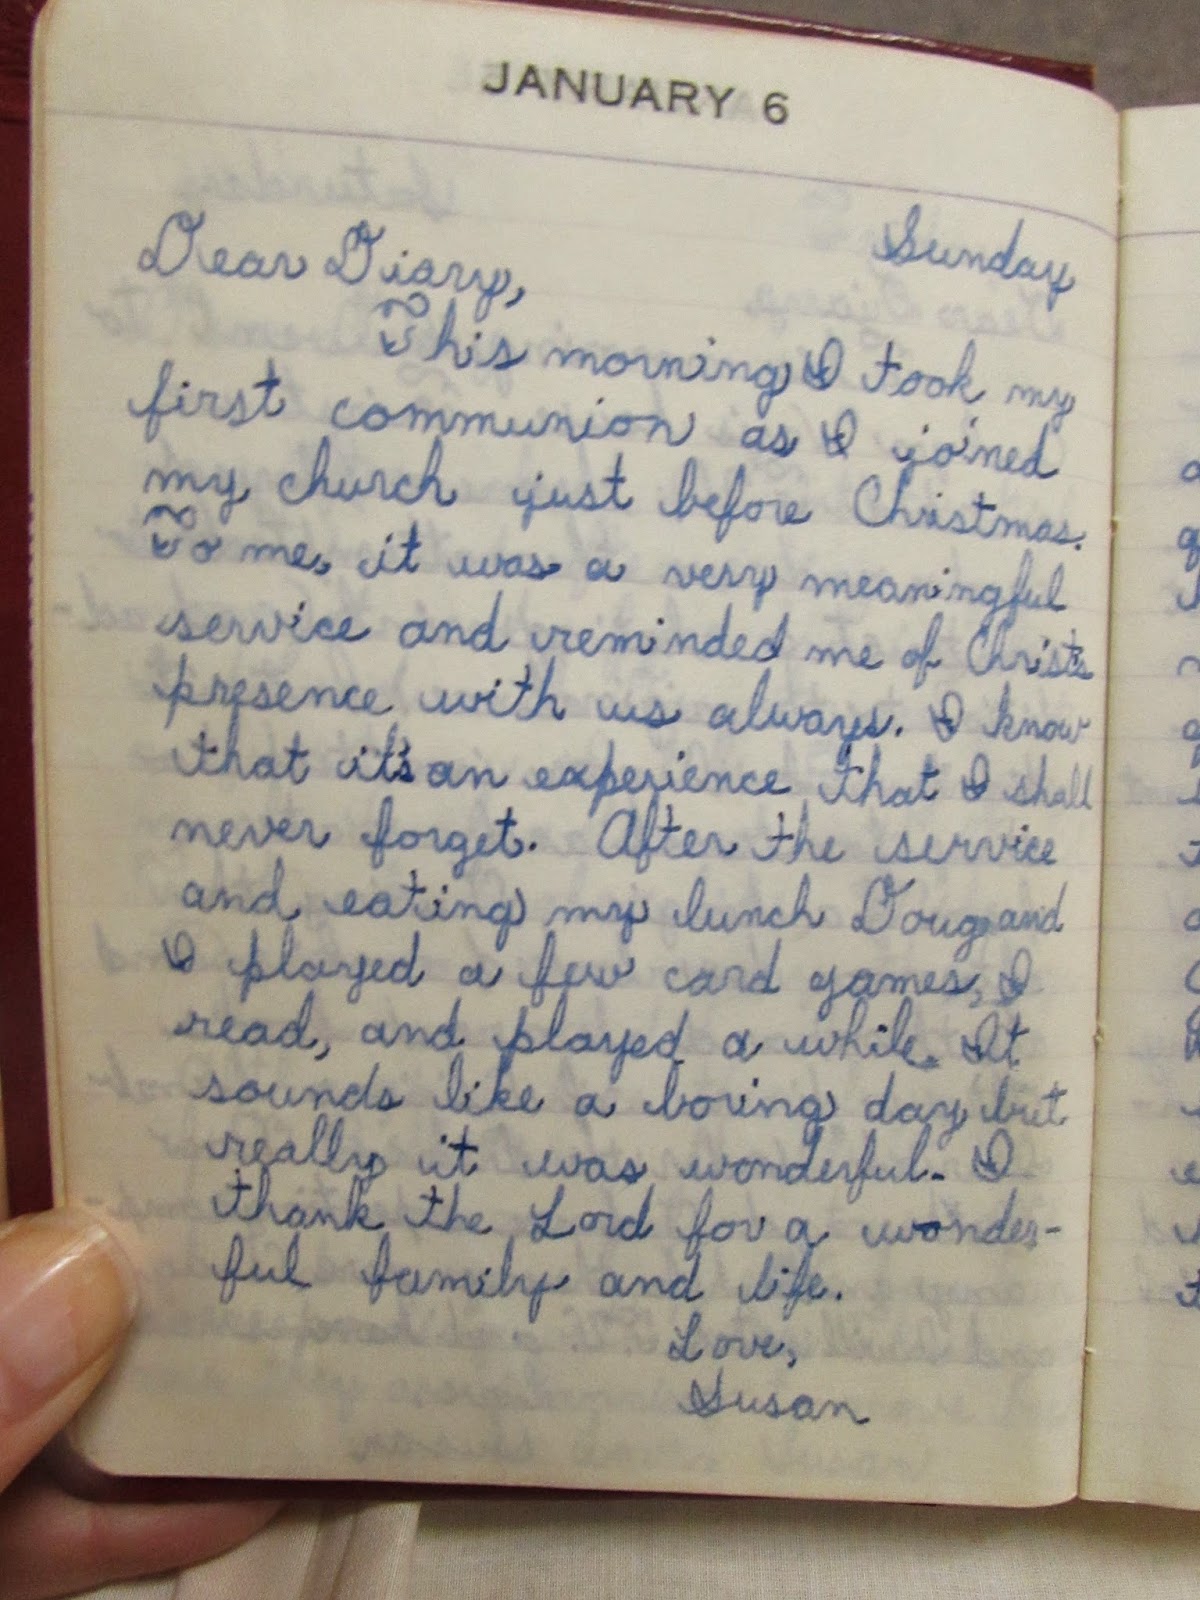 JANUARY 6
Sunday
Dear Diary,
This morning I took my
first communion as I joined
my church just before Christmas.
To me, it was a very meaningful
service and reminded me of Christ's
presence with us always. I know
that it's an experience that I shall
never forget. After the service
and eating my lunch Doug and
I played a few card games, I
read, and played a while. It
sounds like a boring day but
really it was wonderful. I
thank the Lord for a wonder-
ful family and life.
Love,
Susan